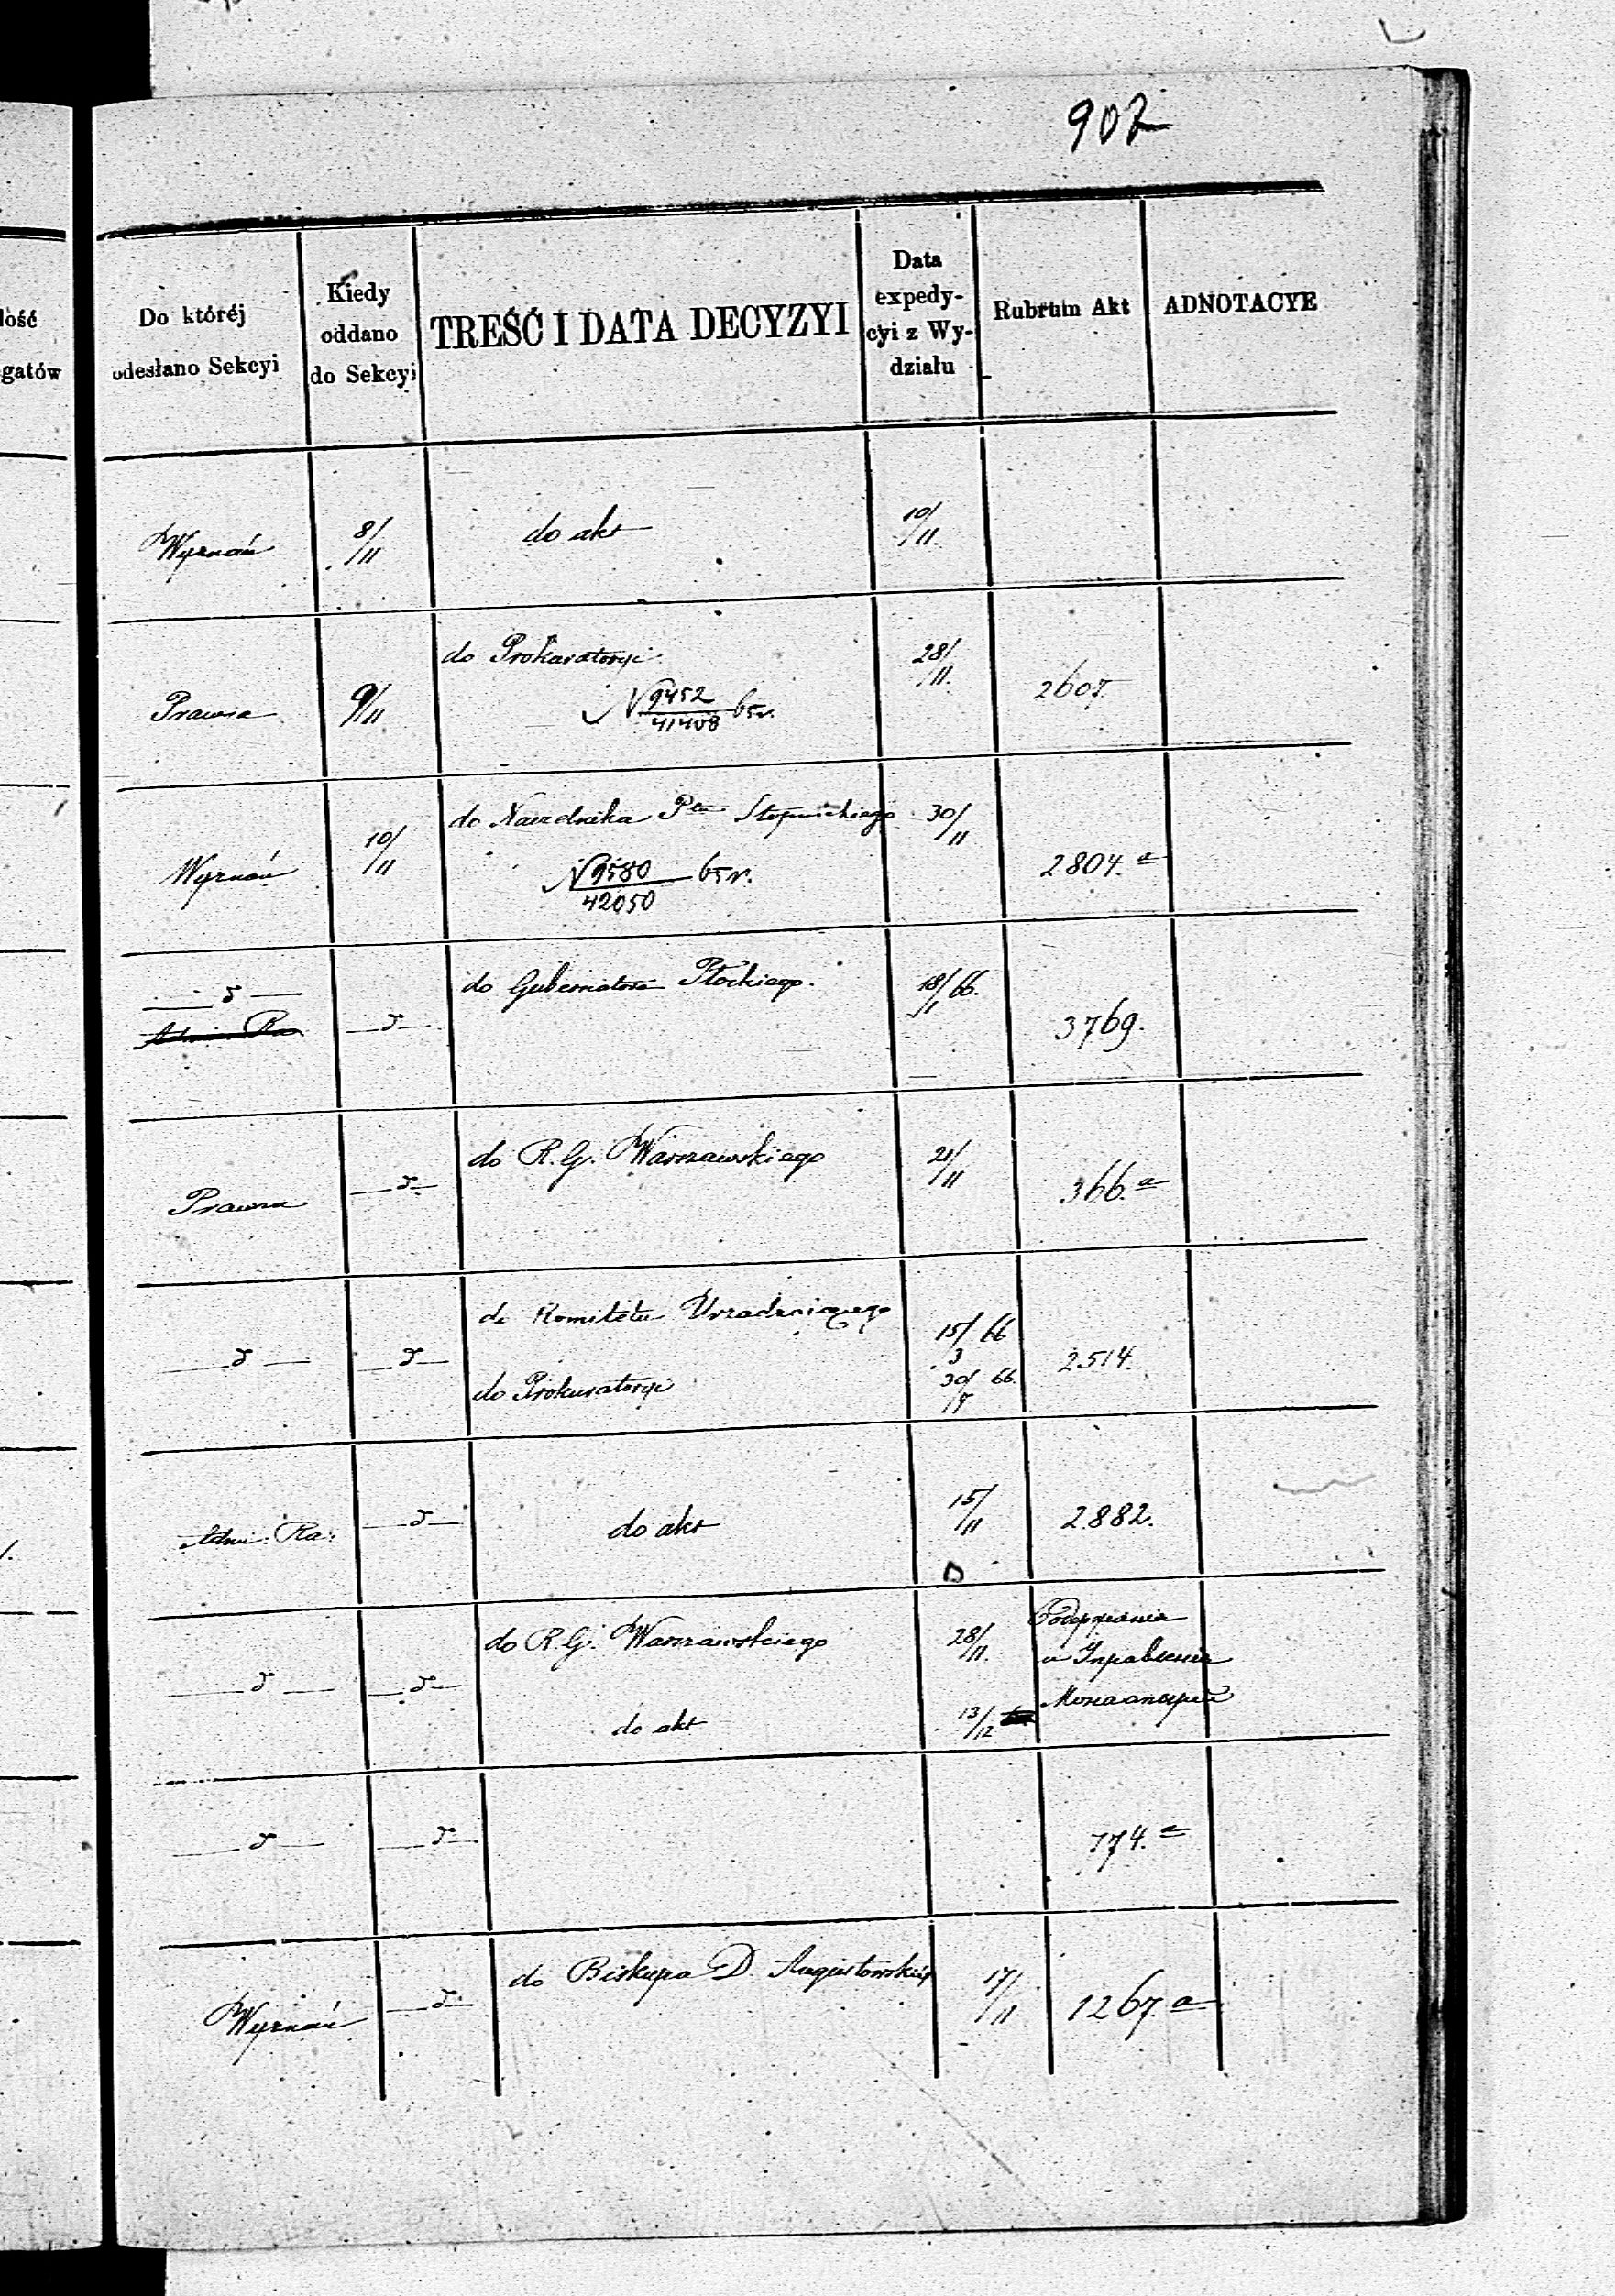 902
łość
gatów
Do któréj
odesłano Sekcyi
Kiedy
oddano
do Sekcyi
TREŚĆ I DATA DECYZYI
Data
expedy-
cyi z Wy-
działu
Rubrum Akt
ADNOTACYE
Wyznań 8/11 do akt 10/11.
do Prokuratoryi 28/11.
Prawna 9/11 N 9452/41408 65 r. 2607.
do Naczelnika Ptu Stopnickiego 30/11
Wyznań 10/11 N 9580/42050 65 r. 2804.a
do Gubernatora Płockiego. 18/1 66.
—d— —d— 3769.
do R. G. Warszawskiego 21/11
Prawna —d— 366.a
do Komitetu Urządzającego 15/3 66
—d— —d— 2514.
do Prokuratoryi 30/ 66.
Adm: Ra: —d— do akt 15/11 2882.
do R. G. Warszawskiego 28/11.
—d— —d—
do akt 13/12
—d— —d— 774.a
do Biskupa D. Augustowskiej 17/11
Wyznań —d— 1267.a